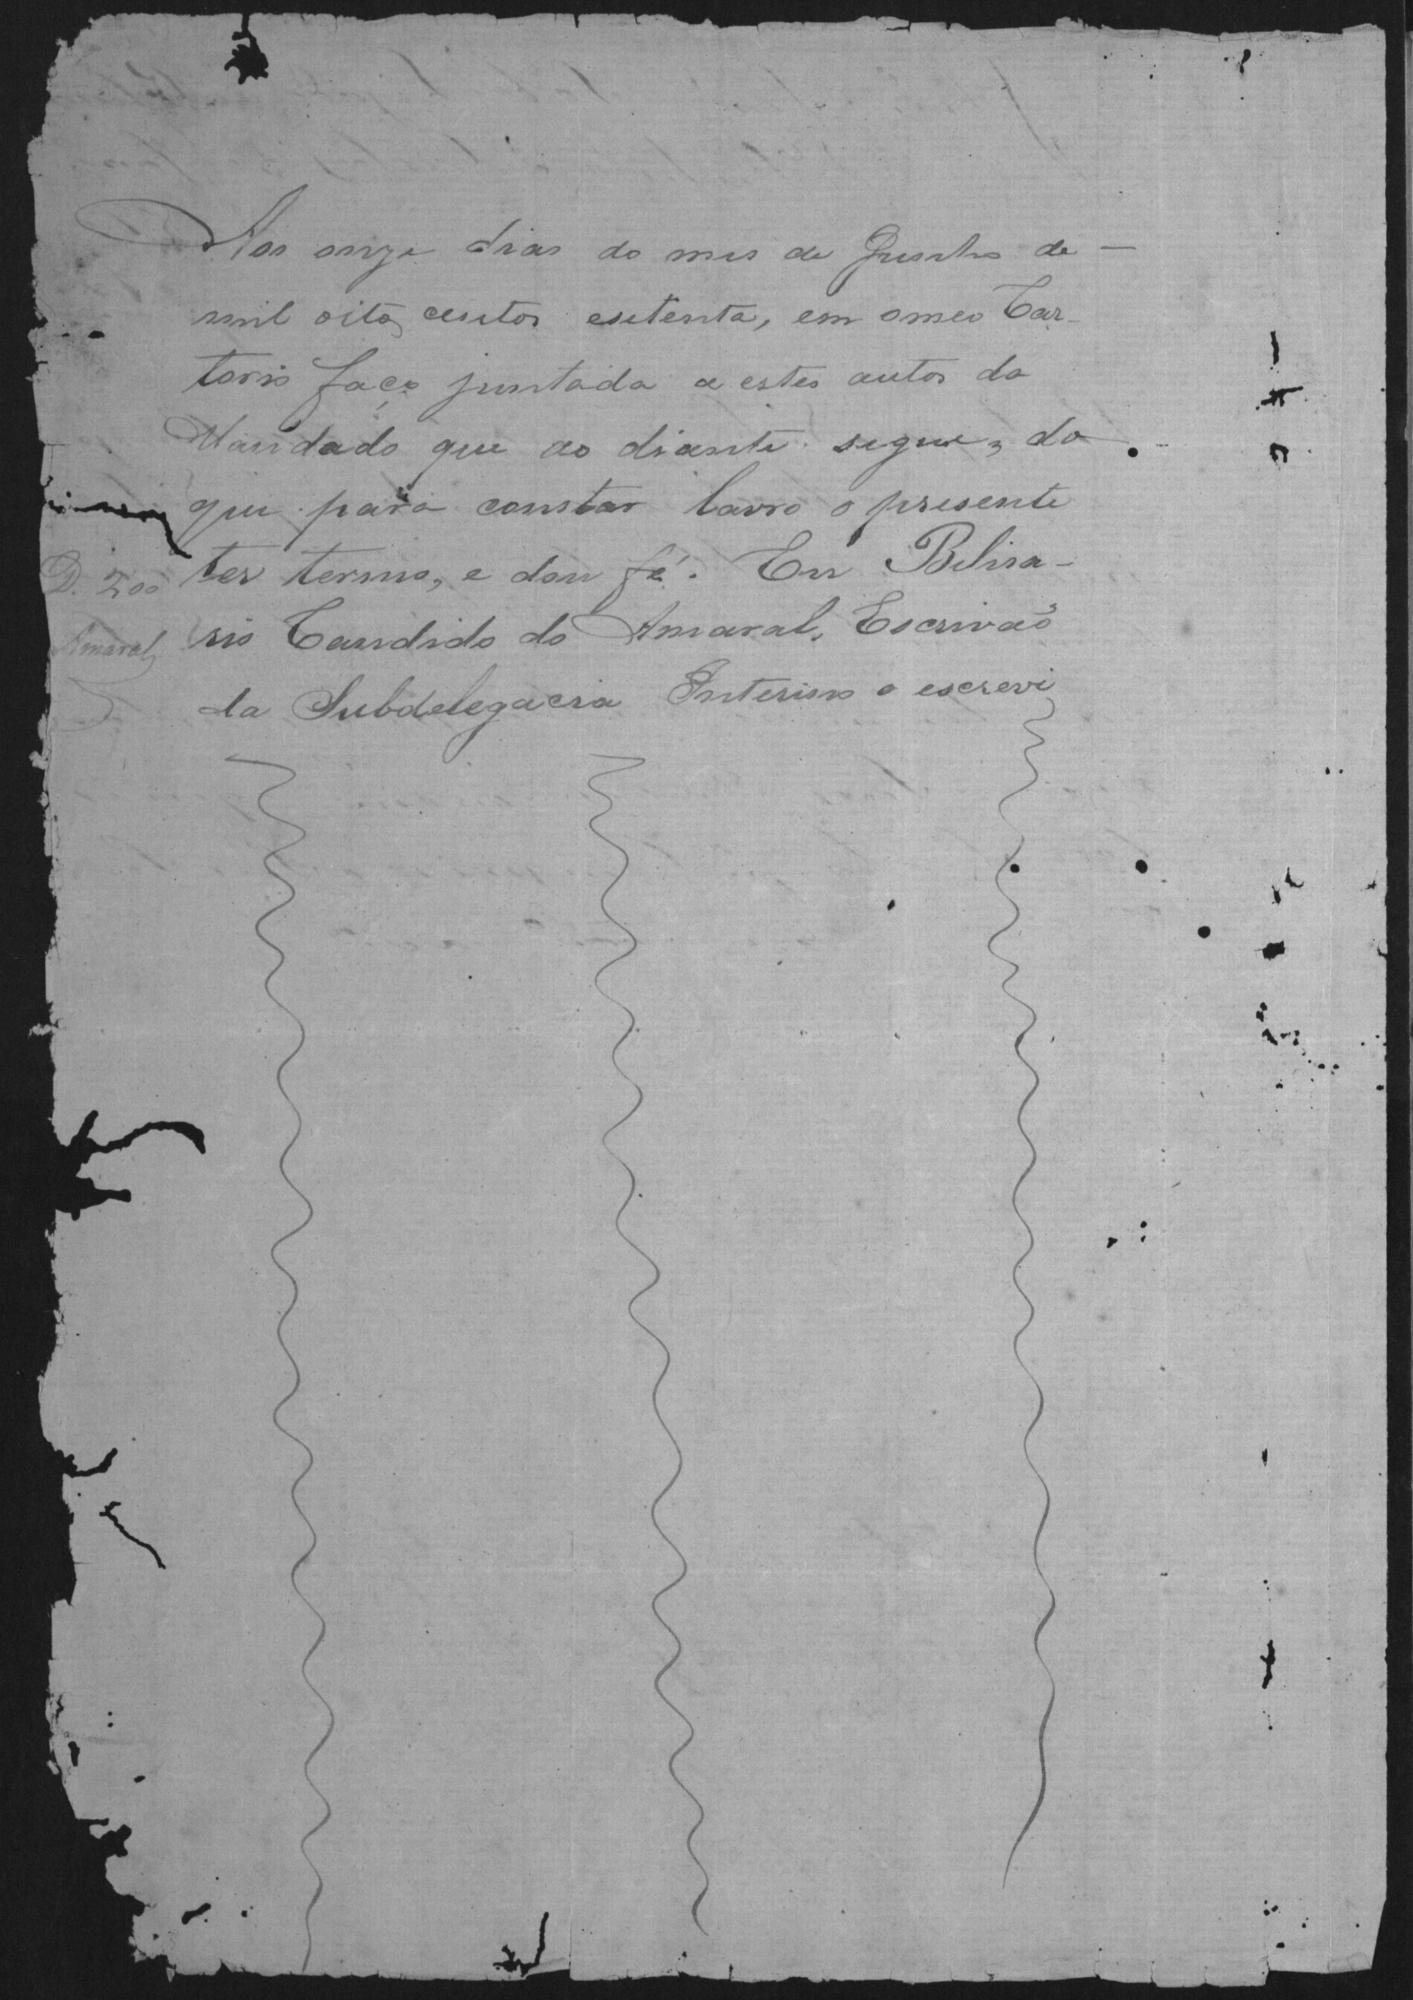 Aos onze dias do mes de Junho de
mil oito centos esetenta, em omeo Car-
torio faço juntada a estes autos do
Mandado que ao diante segue, do
que para constar lavro o presente
ter termo, e dou fé. Eu Belisa-
rio Candido do Amaral, Escrivaõ
da Subdelegacia Interino o escrevi
D. 200
Amaral